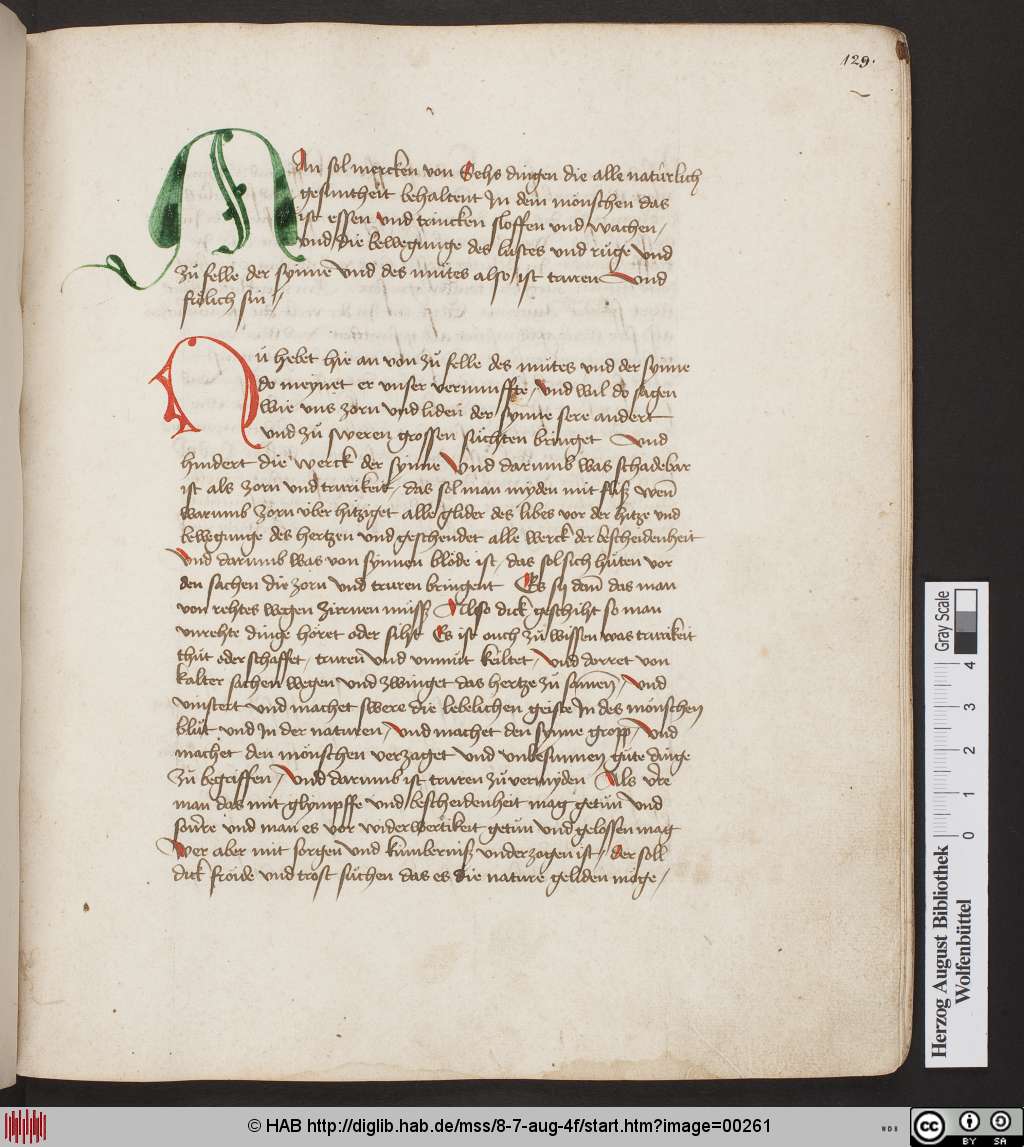 129.
Man sol mercken von Sehs dingen die alle natúrlich
gesuntheit behaltent In dem mönschen das
ist essen und trincken sloffen und wachen /
und die bewegunge des luftes und rüge und
zů felle der synne und des mütes also ist truren Und
frölich sin /
Nů hebet hie an von zů felle des mütes und der synne
do meynet er unser vernunffte / und wil do sagen
wie uns zorn und liden der synne sere andert
und zů sweren grossen süchten bringet Und
hindert die werck der synne Und darumb was schadebar
ist als zorn und trurikeit / das sol man myden mit fliß wen̄
warumb zorn über hitziget alle glider des libes vor der hitze und
bewegunge des hertzen und geschendet alle werck der bescheidenheit
Und darumb was von synnen blöde ist / das sol sich hüten vor
den sachen die zorn und truren bringent Es sy den̄ das man
von rehtes wegen zürnen müsß Also dick geschiht so man
unrehte dinge höret oder siht Es ist ouch zů wissen was trurikeit
thüt oder schaffet / truren und unmüt keltet / und dorret von
kalter sachen wegen und zwinget das hertze zů samen̄ / und
vinstert und machet swere die lebelichen geiste In des mönschen
blüt und In der naturen / und machet den synne gropp / Und
machet den mönschen verzaget und unbesinnen güte dinge
zů begriffen / und darumb ist truren zů vermyden Als v̄re
man das mit glympffe und bescheidenheit mag getun und
son̄re und man es vor widerwertikeit getün und gelossen mag
Wer aber mit sorgen und kumberniß underzogen ist / der soll
dick froide und trost süchen das es die nature geliden möge /
Gray Scale
4
3
2
1
0
Herzog August Bibliothek
Wolfenbüttel
© HAB http://diglib.hab.de/mss/8-7-aug-4f/start.htm?image=00261
WDB
cc BY SA